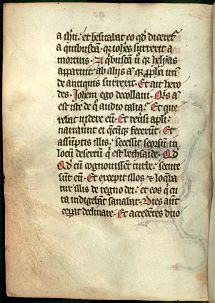 a ihu. et hesitabat eo qd diceret
a quibusdam. qr iohes surrexit a
mortuis. A qbusdam u qr helyas
apparuit. ab aliys at qr ppha un
de antiquis surrexit. Et ait hero
des. Johem ego decollaui. Qs a
est iste de q audio talia. Et que
rebat uidere eu. Et reuersi apli.
narrauerut ei qcunq fecerut. Et
assuptis illis. secessit seorsu in
locu desertu q est bethsaide. Qd
cu cognouissent turbe. secute
sut eu. Et excepit illos & loqba
tur illis de regno dei. et eos q cu
ra indigebant sanabat. Dies aut
ceperat declinare. Et accedetes duo